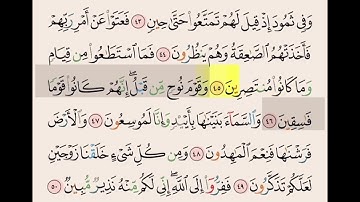 وَفِي ثَمُودَ إِذْ قِيلَ لَهُمْ تَمَتَّعُوا۟ حَتَّىٰ حِينٍ ٤٣ فَعَتَوْا۟ عَنْ أَمْرِ رَبِّهِمْ
فَأَخَذَتْهُمُ ٱلصَّـٰعِقَةُ وَهُمْ يَنظُرُونَ ٤٤ فَمَا ٱسْتَطَـٰعُوا۟ مِن قِيَامٍ
وَمَا كَانُوا۟ مُنتَصِرِينَ ٤٥ وَقَوْمَ نُوحٍ مِّن قَبْلُ ۖ إِنَّهُمْ كَانُوا۟ قَوْمًا
فَـٰسِقِينَ ٤٦ وَٱلسَّمَآءَ بَنَيْنَـٰهَا بِأَيْي۟دٍ وَإِنَّا لَمُوسِعُونَ ٤٧ وَٱلْأَرْضَ
فَرَشْنَـٰهَا فَنِعْمَ ٱلْمَـٰهِدُونَ ٤٨ وَمِن كُلِّ شَىْءٍ خَلَقْنَا زَوْجَيْنِ
لَعَلَّكُمْ تَذَكَّرُونَ ٤٩ فَفِرُّوٓا۟ إِلَى ٱللَّهِ ۖ إِنِّى لَكُم مِّنْهُ نَذِيرٌ مُّبِينٌ ٥٠